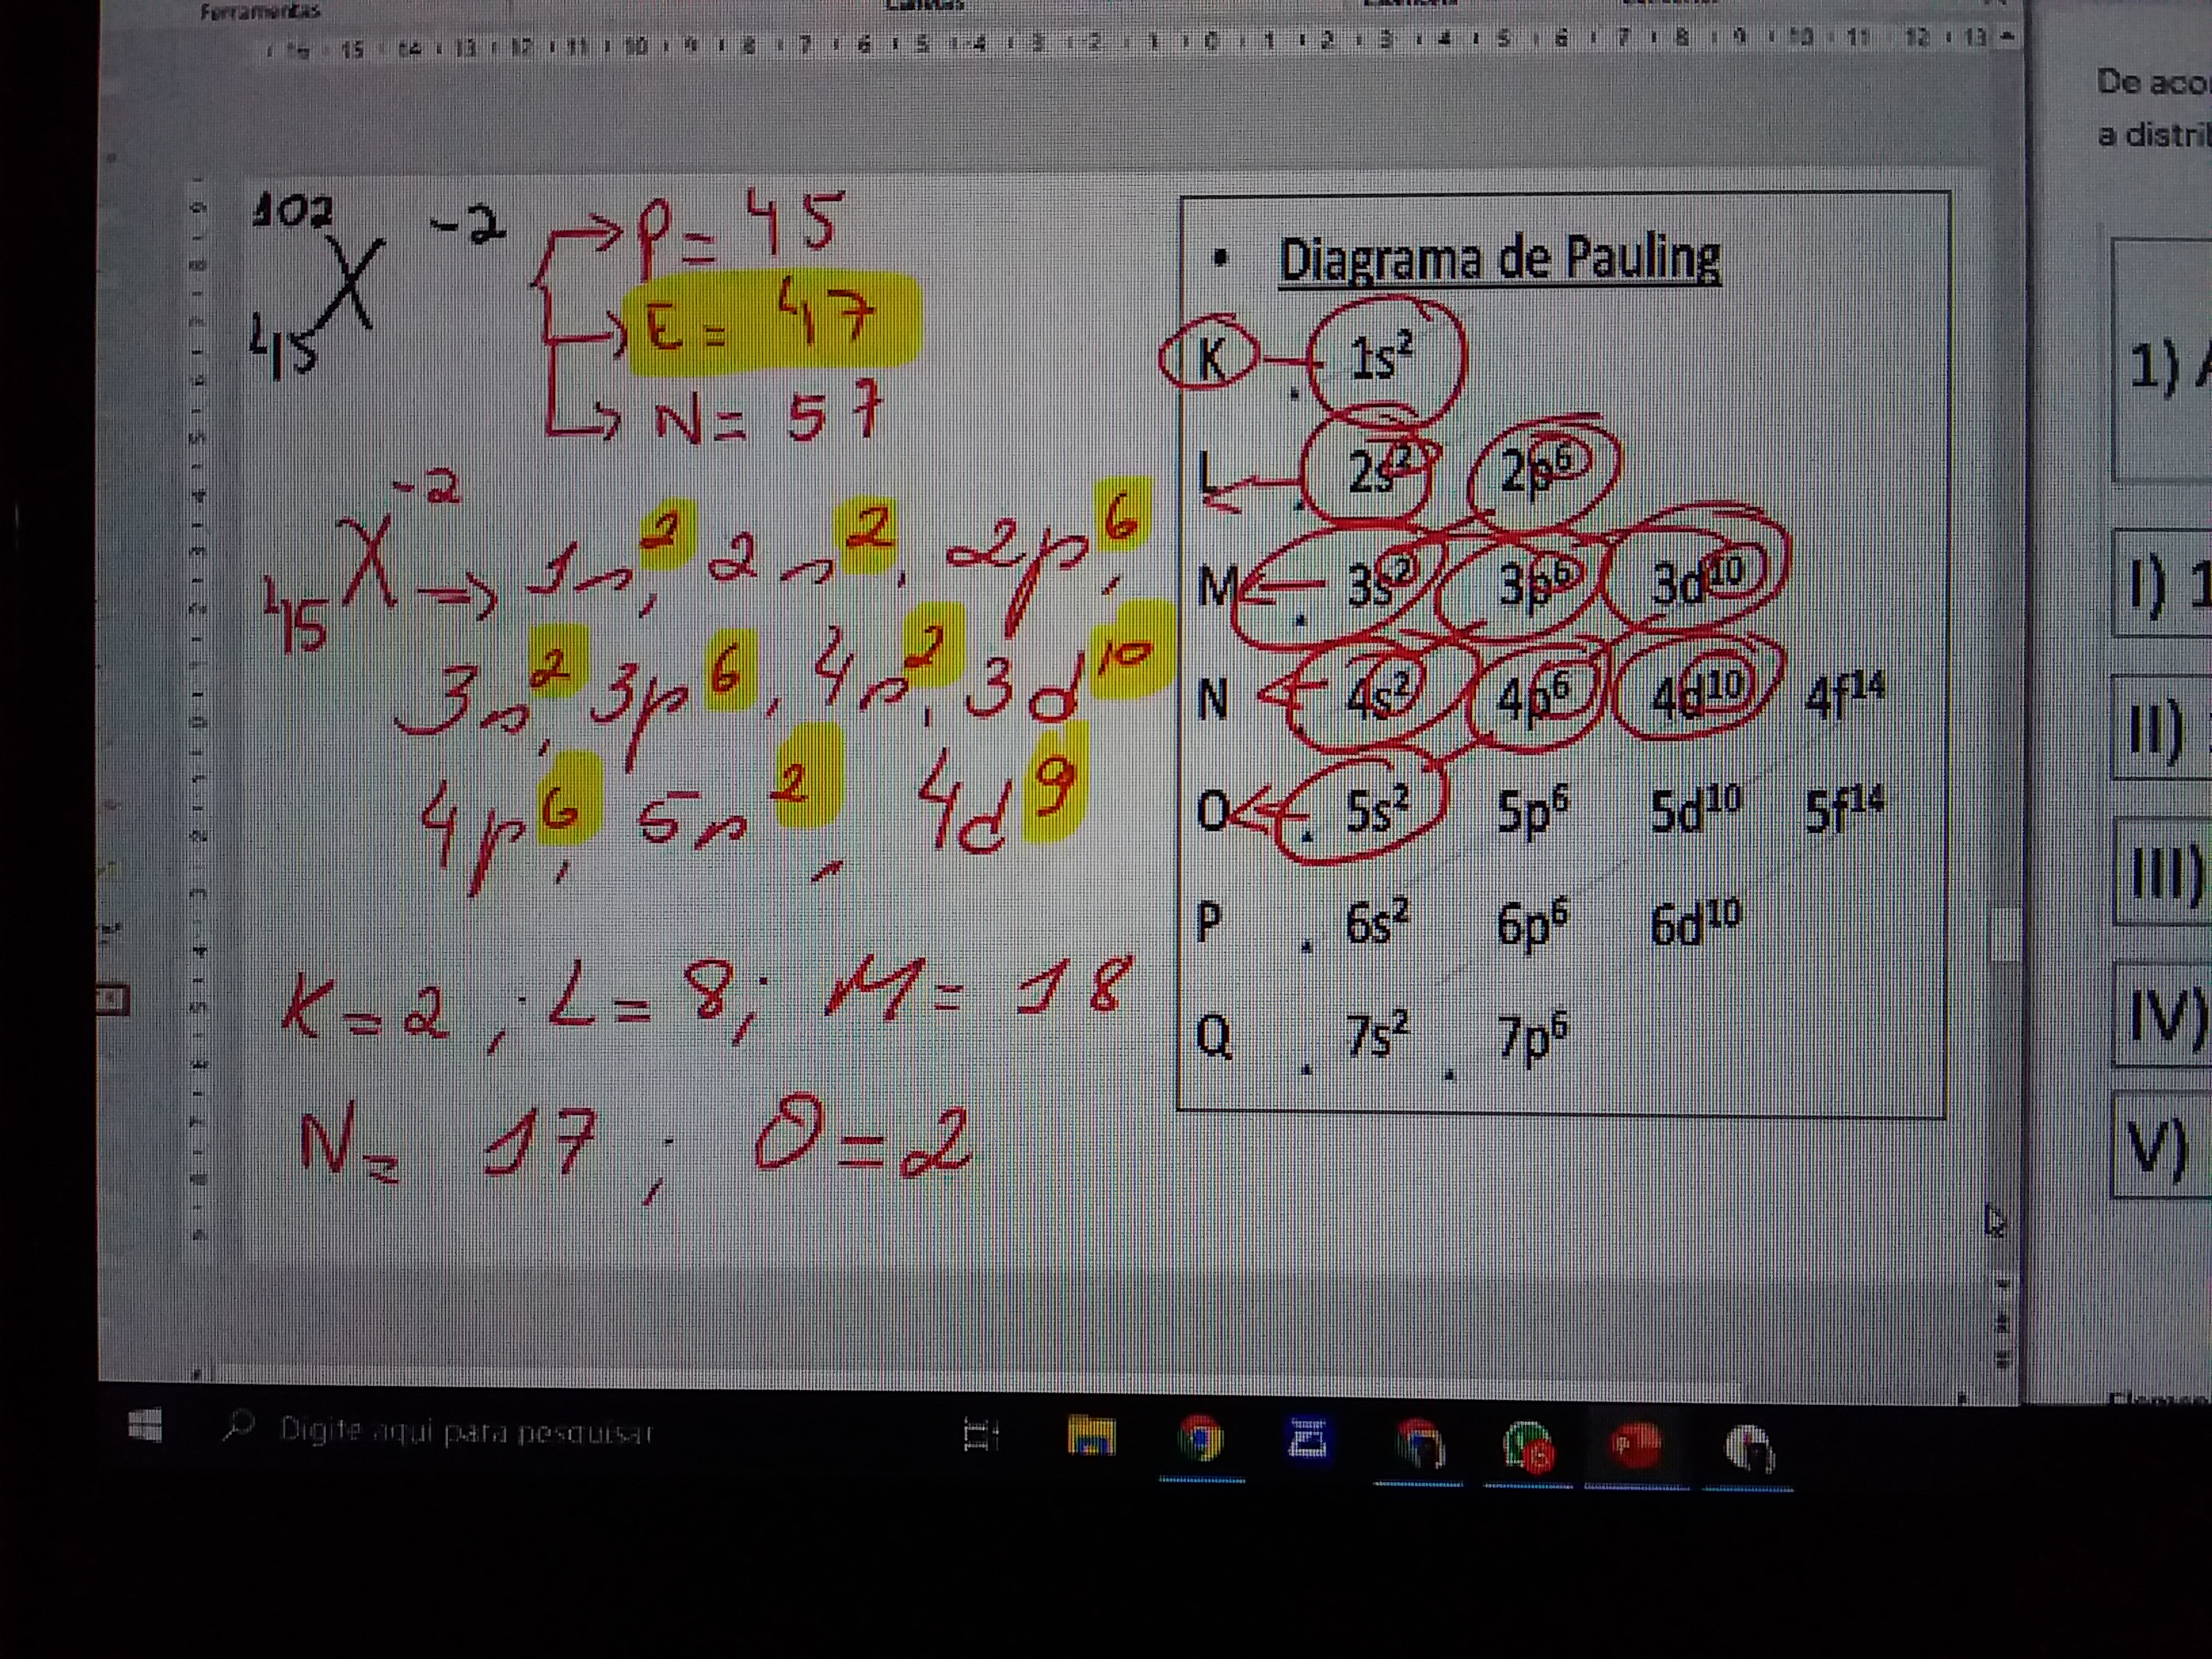 Ferramentas
15 14 13 12 11 10 9 8 7 6 5 4 3 2 1 0 1 2 3 4 5 6 7 8 9 10 11 12 13
102 X -2 P = 45
45 E = 47
N = 57
45 X -2 → 1s², 2s², 2p⁶,
3s², 3p⁶, 4s², 3d¹⁰
4p⁶, 5s², 4d⁹
K = 2, L = 8; M = 18
N = 17; O = 2
• Diagrama de Pauling
K 1s²
L 2s² 2p⁶
M 3s² 3p⁶ 3d¹⁰
N 4s² 4p⁶ 4d¹⁰ 4f¹⁴
O 5s² 5p⁶ 5d¹⁰ 5f¹⁴
P 6s² 6p⁶ 6d¹⁰
Q 7s² 7p⁶
De aco
a distri
1) A
I) 1
II)
III)
IV)
V)
Digite aqui para pesquisar